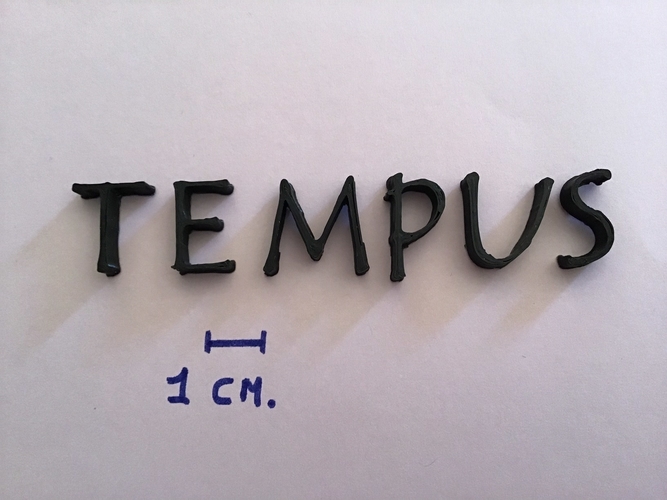 TEMPUS
1 CM.